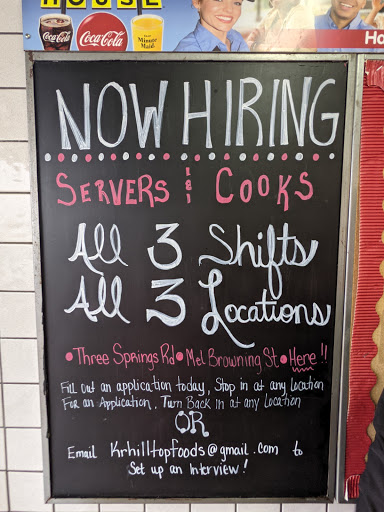 HOUSE
Coca-Cola
Coca-Cola
Minute
Maid
Ho
NOW HIRING
SERVERS & COOKS
All 3 Shifts
All 3 Locations
• Three Springs Rd • Mel Browning St • Here !!
Fill out an application today, Stop in at any Location
For an Application, Turn Back in at any Location
OR
Email Krhilltopfoods@gmail.com to
Set up an Interview!